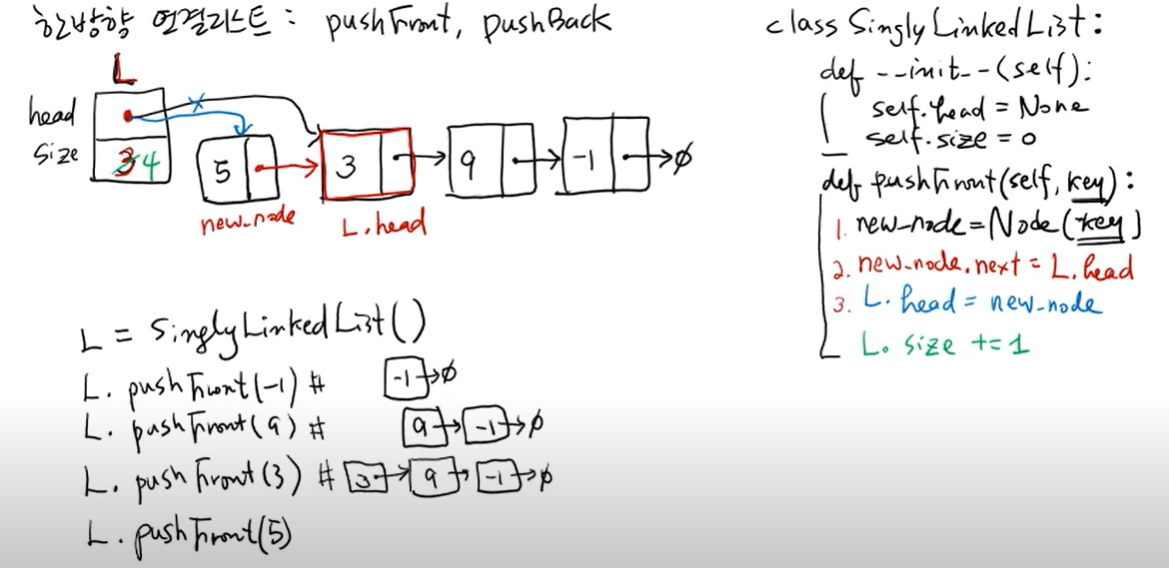 한방향 연결리스트 : pushFront, pushBack
L
head
size 3 4
5 3 9 -1 ∅
new_node L.head
L = SinglyLinkedList()
L. pushFront(-1) # -1 → ∅
L. pushFront(9) # 9 → -1 → ∅
L. pushFront(3) # 3 → 9 → -1 → ∅
L. pushFront(5)
class SinglyLinkedList:
def __init__(self):
self.head = None
self.size = 0
def pushFront(self, key):
1. new_node = Node(key)
2. new_node.next = L.head
3. L.head = new_node
L.size += 1